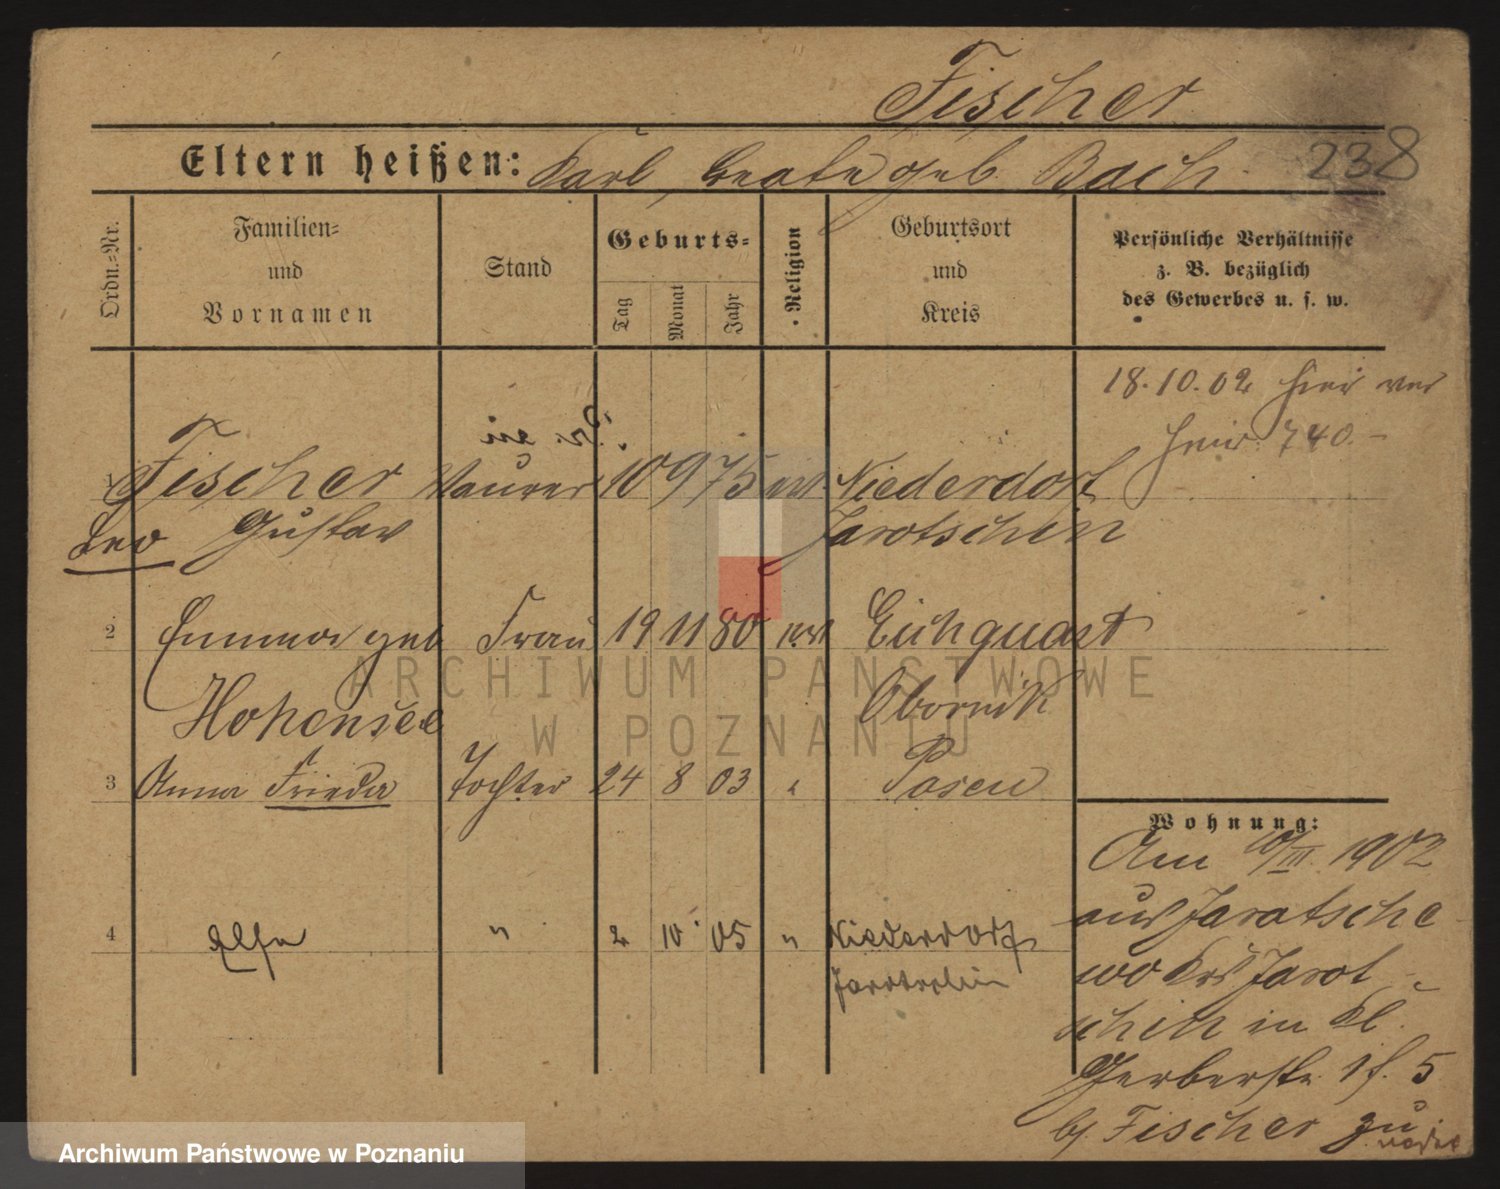 Fischer
Eltern heißen: Karl, Beate geb. Bach
238
Ordn.=Nr.
Familien= und Vornamen
Stand
Geburts=
Tag
Monat
Jahr
Religion
Geburtsort und Kreis
Persönliche Verhältnisse
z. B. bezüglich
des Gewerbes u. s. w.
18.10.02 hier ver
heir. 740.-
1 Fischer Maurer 10 9 75 ev. Niederdorf
Leo Gustav Jarotschin
2 Emma geb Frau 19 11 80 ev. Eichquast
Hohensee Obornik
3 Anna Frieda Tochter 24 8 03 " Posen
4 Elsa " 2 10 05 " Niederdorf
Jarotschin
Wohnung:
Am 10/III. 1902
aus Jaratsche
wo Krs Jarot
schin in Kl.
Gerberstr. 1 f. 5
b/ Fischer zu
ARCHIWUM PAŃSTWOWE
W POZNANIU
Archiwum Państwowe w Poznaniu